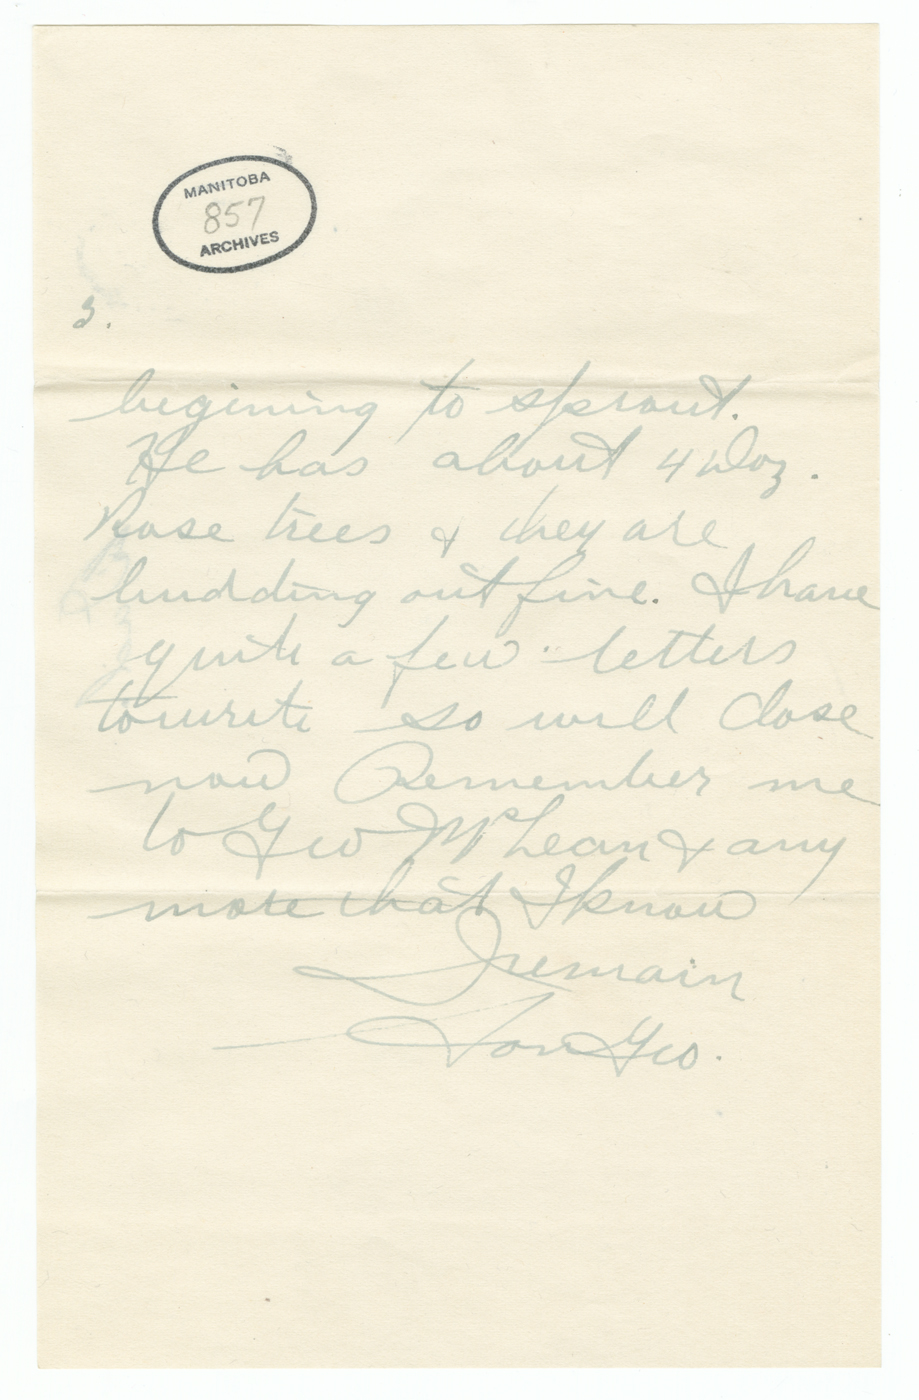 MANITOBA
857
ARCHIVES
3.
begining to sprout.
He has about 4 Doz.
Rose trees & they are
budding out fine. I have
quite a few letters
to write so will close
now Remember me
to Geo McLean & any
more that I know
I remain
Son Geo.